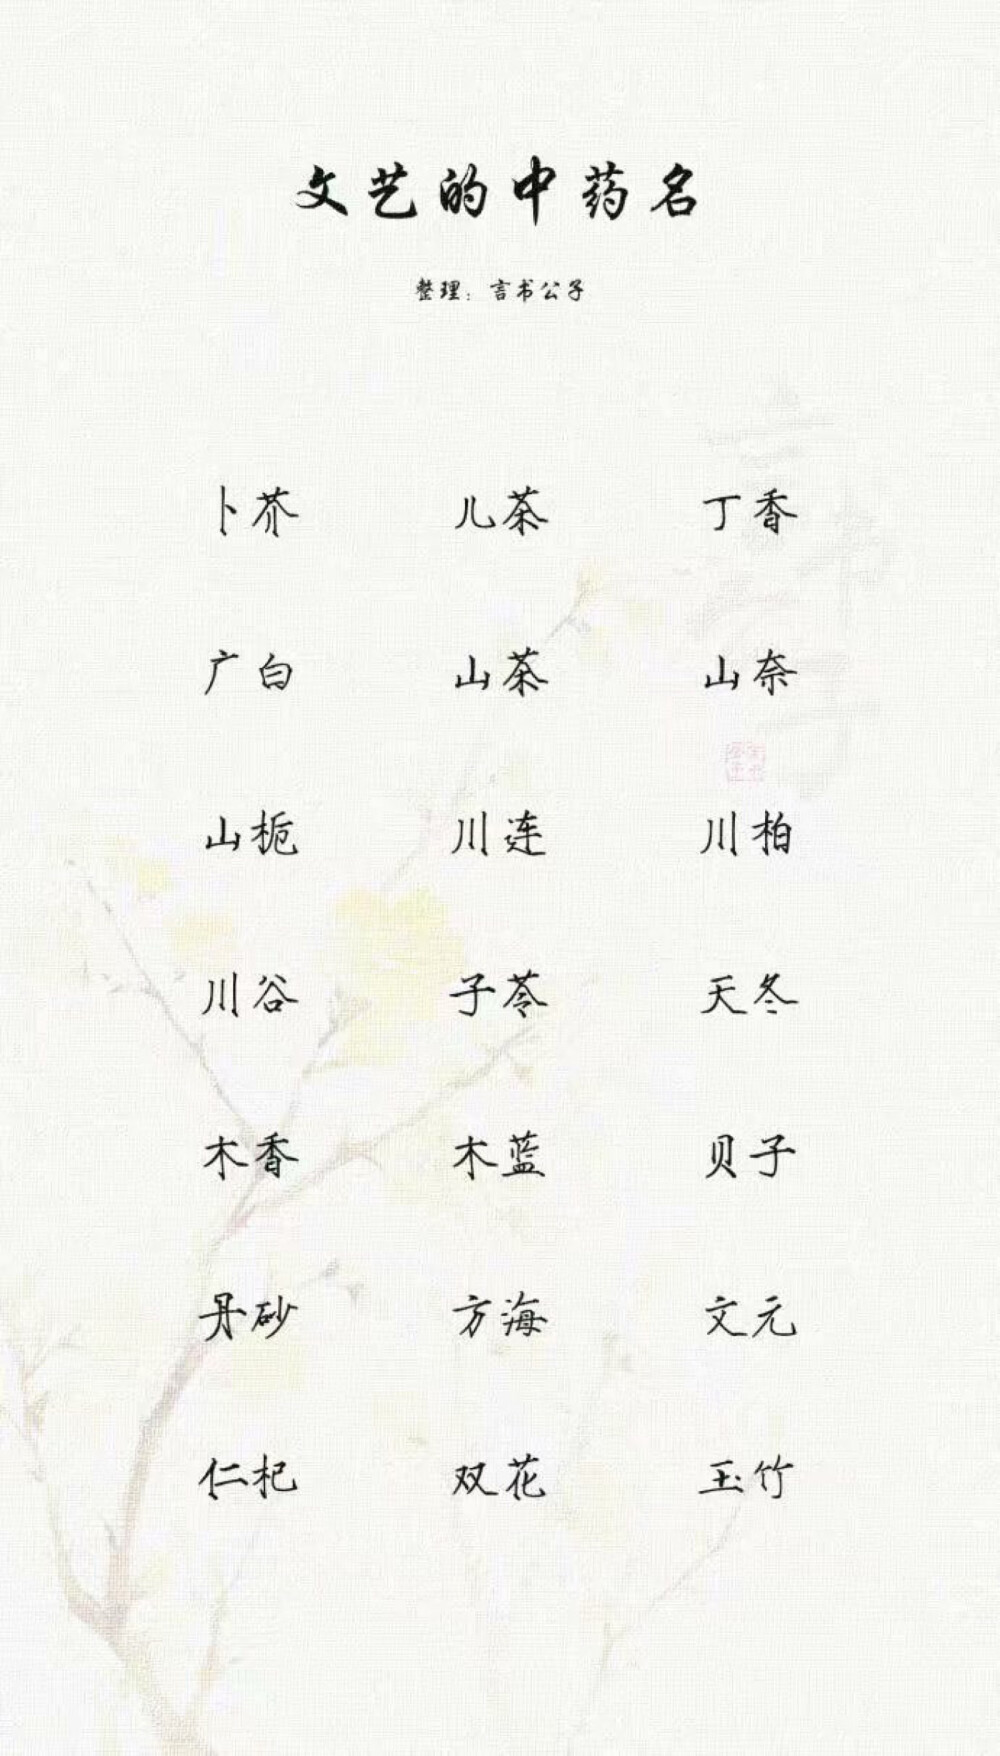 文艺的中药名
整理：言书公子
卜芥 儿茶 丁香
广白 山茶 山奈
山栀 川连 川柏
川谷 子苓 天冬
木香 木蓝 贝子
丹砂 方海 文元
仁杞 双花 玉竹
言书公子